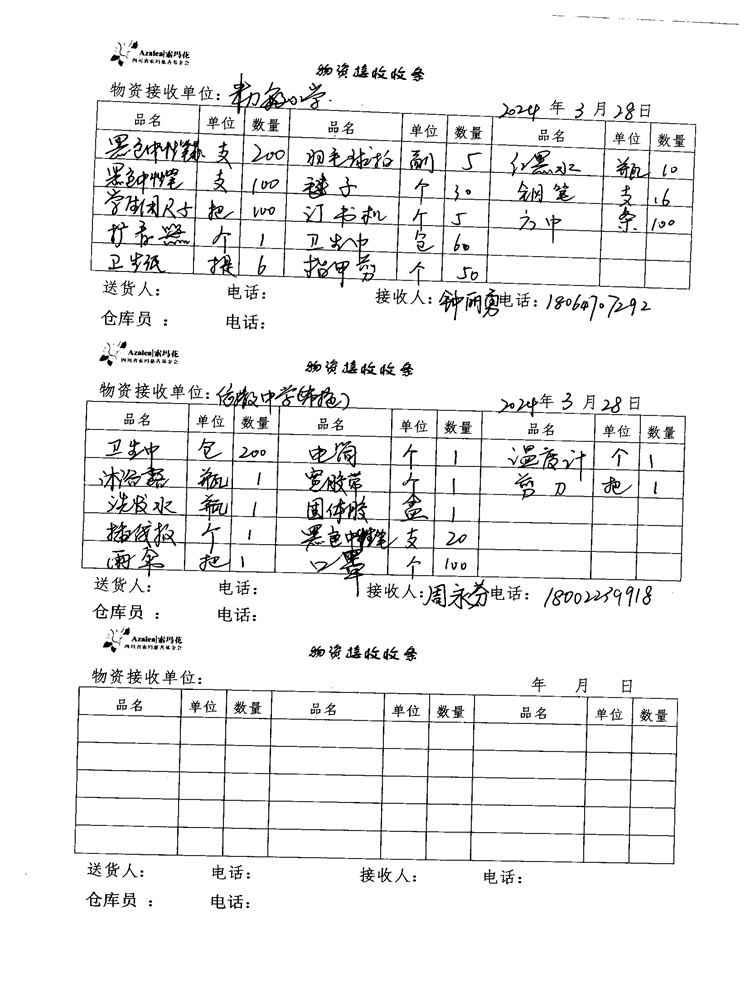 Azalea|索玛花
四川省索玛慈善基金会
物资接收收条
物资接收单位：
2024年3月28日
品名 单位 数量 品名 单位 数量 品名 单位 数量
支 200 羽毛球拍 副 5 红黑水 瓶 10
黑色中性笔 支 100 毽子 个 30 钢笔 支 16
把 100 订书机 个 5 方巾 条 100
扩音器 个 1 卫生巾 包 60
卫生纸 提 6 指甲剪 个 50
送货人： 电话： 接收人：钟丽勇 电话：18064707292
仓库员： 电话：
Azalea|索玛花
四川省索玛慈善基金会
物资接收收条
物资接收单位：
2024年3月28日
品名 单位 数量 品名 单位 数量 品名 单位 数量
卫生巾 包 200 电筒 个 1 温度计 个 1
沐浴露 瓶 1 宽胶带 个 1 剪刀 把 1
洗发水 瓶 1 固体胶 盒 1
插线板 个 1 黑色中性笔 支 20
雨伞 把 1 口罩 个 100
送货人： 电话： 接收人：周永芬 电话：18002239918
仓库员： 电话：
Azalea|索玛花
四川省索玛慈善基金会
物资接收收条
物资接收单位：
年 月 日
品名 单位 数量 品名 单位 数量 品名 单位 数量
送货人： 电话： 接收人： 电话：
仓库员： 电话：